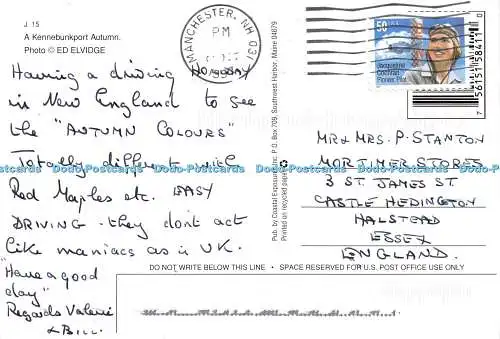 J 15
A Kennebunkport Autumn.
Photo © ED ELVIDGE
Having a driving HOLIDAY
in New England to see
the "AUTUMN COLOURS"
Totally different with
Red Maples etc. EASY
DRIVING - they don't act
like maniacs as in UK.
"Have a good
day"
Regards Valerie
& BILL.
MANCHESTER, NH 031
PM
50 USA
Jacqueline
Cochran
Pioneer Pilot
7 56151 58411 0
Pub. by Coastal Exposures, Inc., P.O. Box 290, Southwest Harbor, Maine 04679
Printed on recycled paper
MR & MRS. P. STANTON
MORTIMER STORES
3 ST. JAMES ST
CASTLE HEDINGTON
HALSTEAD
ESSEX
ENGLAND.
DO NOT WRITE BELOW THIS LINE • SPACE RESERVED FOR U.S. POST OFFICE USE ONLY
Postcards www.Postcards